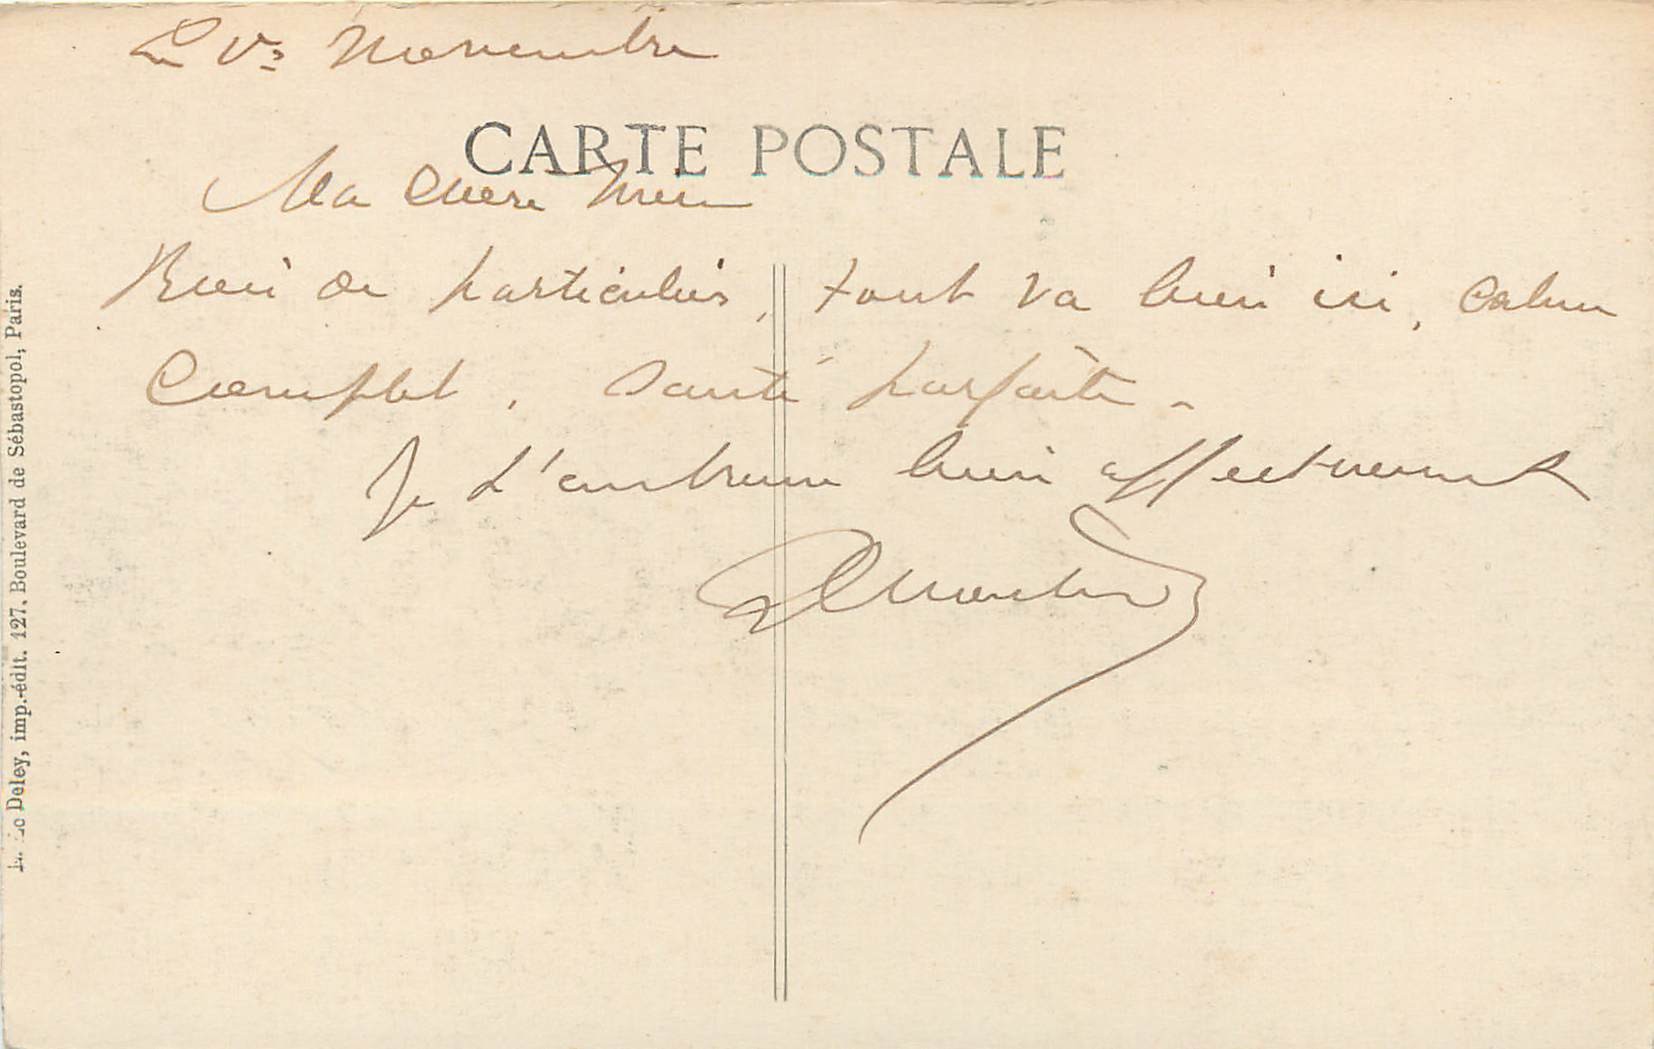 Le Novembre
CARTE POSTALE
Ma chère
Rien de particulier, tout va bien ici, calme
complet, Santé parfaite -
Je t'embrasse bien affectueusement
Le Deley, imp.-édit. 127, Boulevard de Sébastopol, Paris.